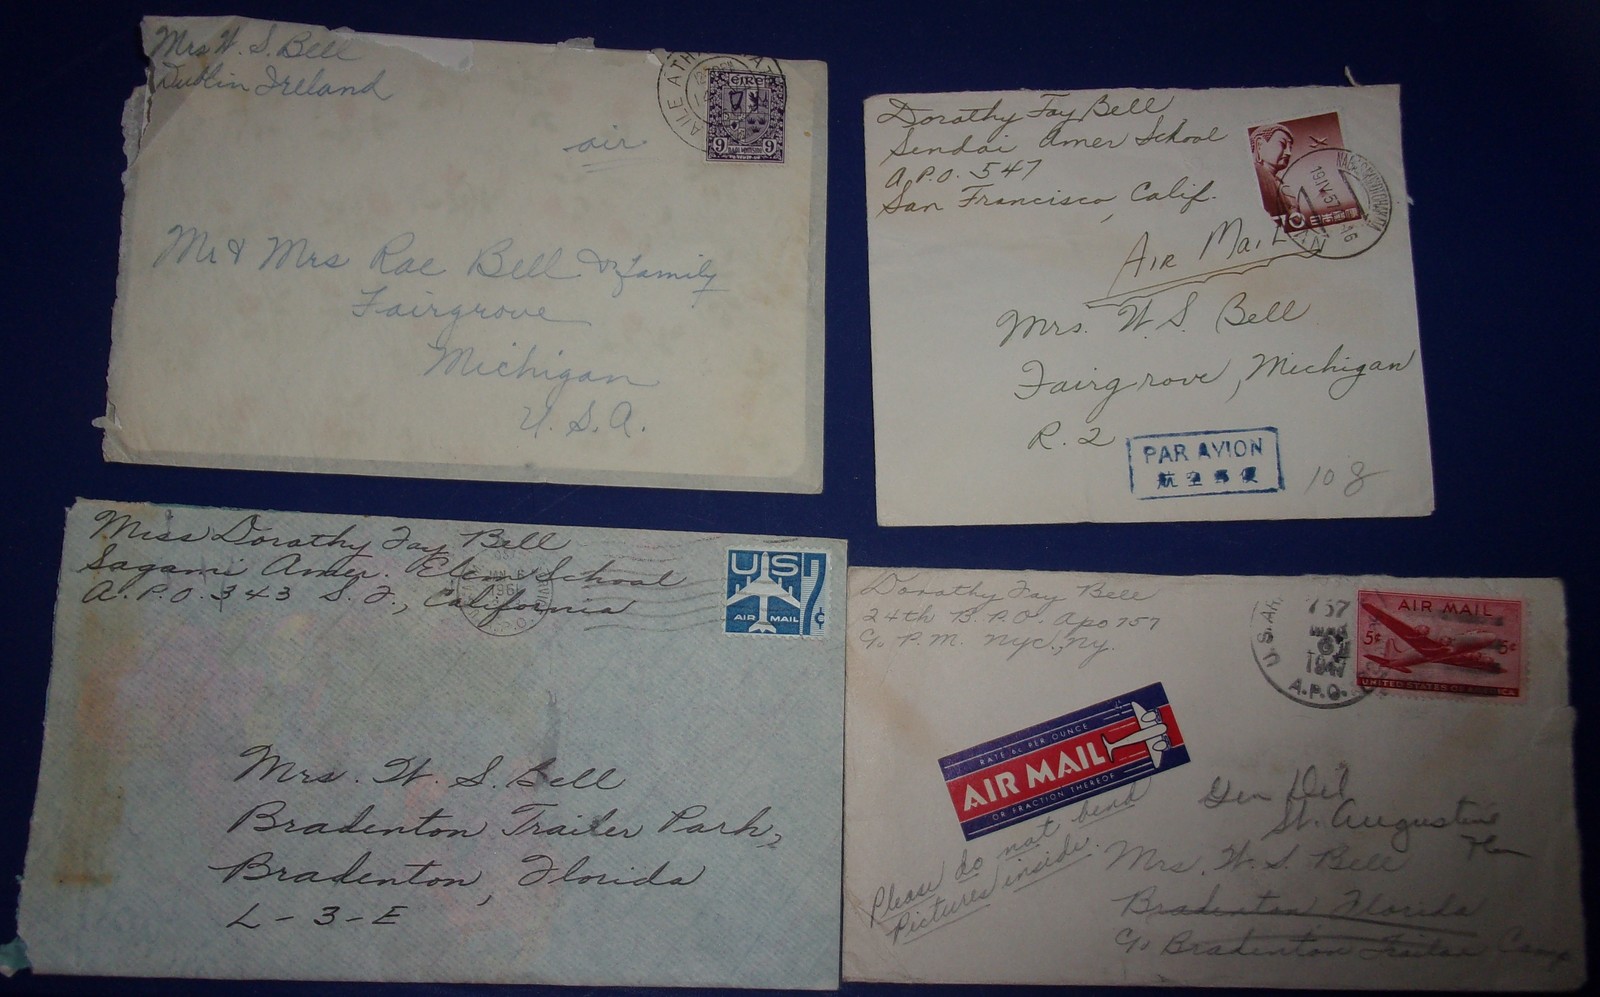 Mrs W. S. Bell
Dublin Ireland
air
EIRE
9 9
Mr & Mrs Rae Bell & family
Fairgrove
Michigan
U. S. A.
Dorothy Fay Bell
Sendai Amer School
A.P.O. 547
San Francisco, Calif.
19 IV 57
Air Mail
Mrs. W. S. Bell
Fairgrove, Michigan
R. 2
PAR AVION
航空郵便
108
Miss Dorothy Fay Bell
Sagami Amer. Elem School
A.P.O. 343 S. F., California
JAN 6
US 7¢
AIR MAIL
Mrs. W. S. Bell
Bradenton Trailer Park,
Bradenton, Florida
L-3-E
Dorothy Fay Bell
24th B.P.O. Apo 757
c/o P.M. Nyc., Ny.
757
1947
A.P.O.
AIR MAIL
5¢ 5¢
UNITED STATES OF AMERICA
RATE 6¢ PER OUNCE
AIR MAIL
OR FRACTION THEREOF
Please do not bend
Pictures inside.
Gen Del
St. Augustine
Fla
Mrs. W. S. Bell
Bradenton Florida
c/o Bradenton Trailer Camp